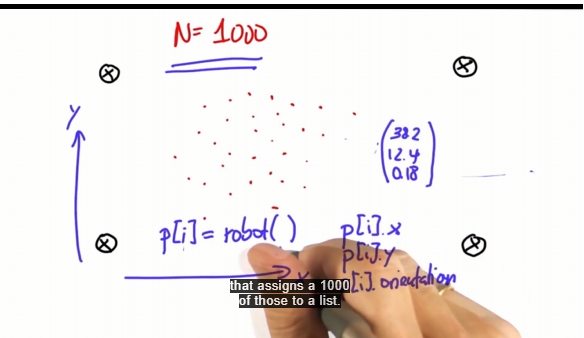 N= 1000
Y
382
12.4
0.18
p[i] = robot( )
p[i].x
p[i].y
[i].orientation
that assigns a 1000
of those to a list.